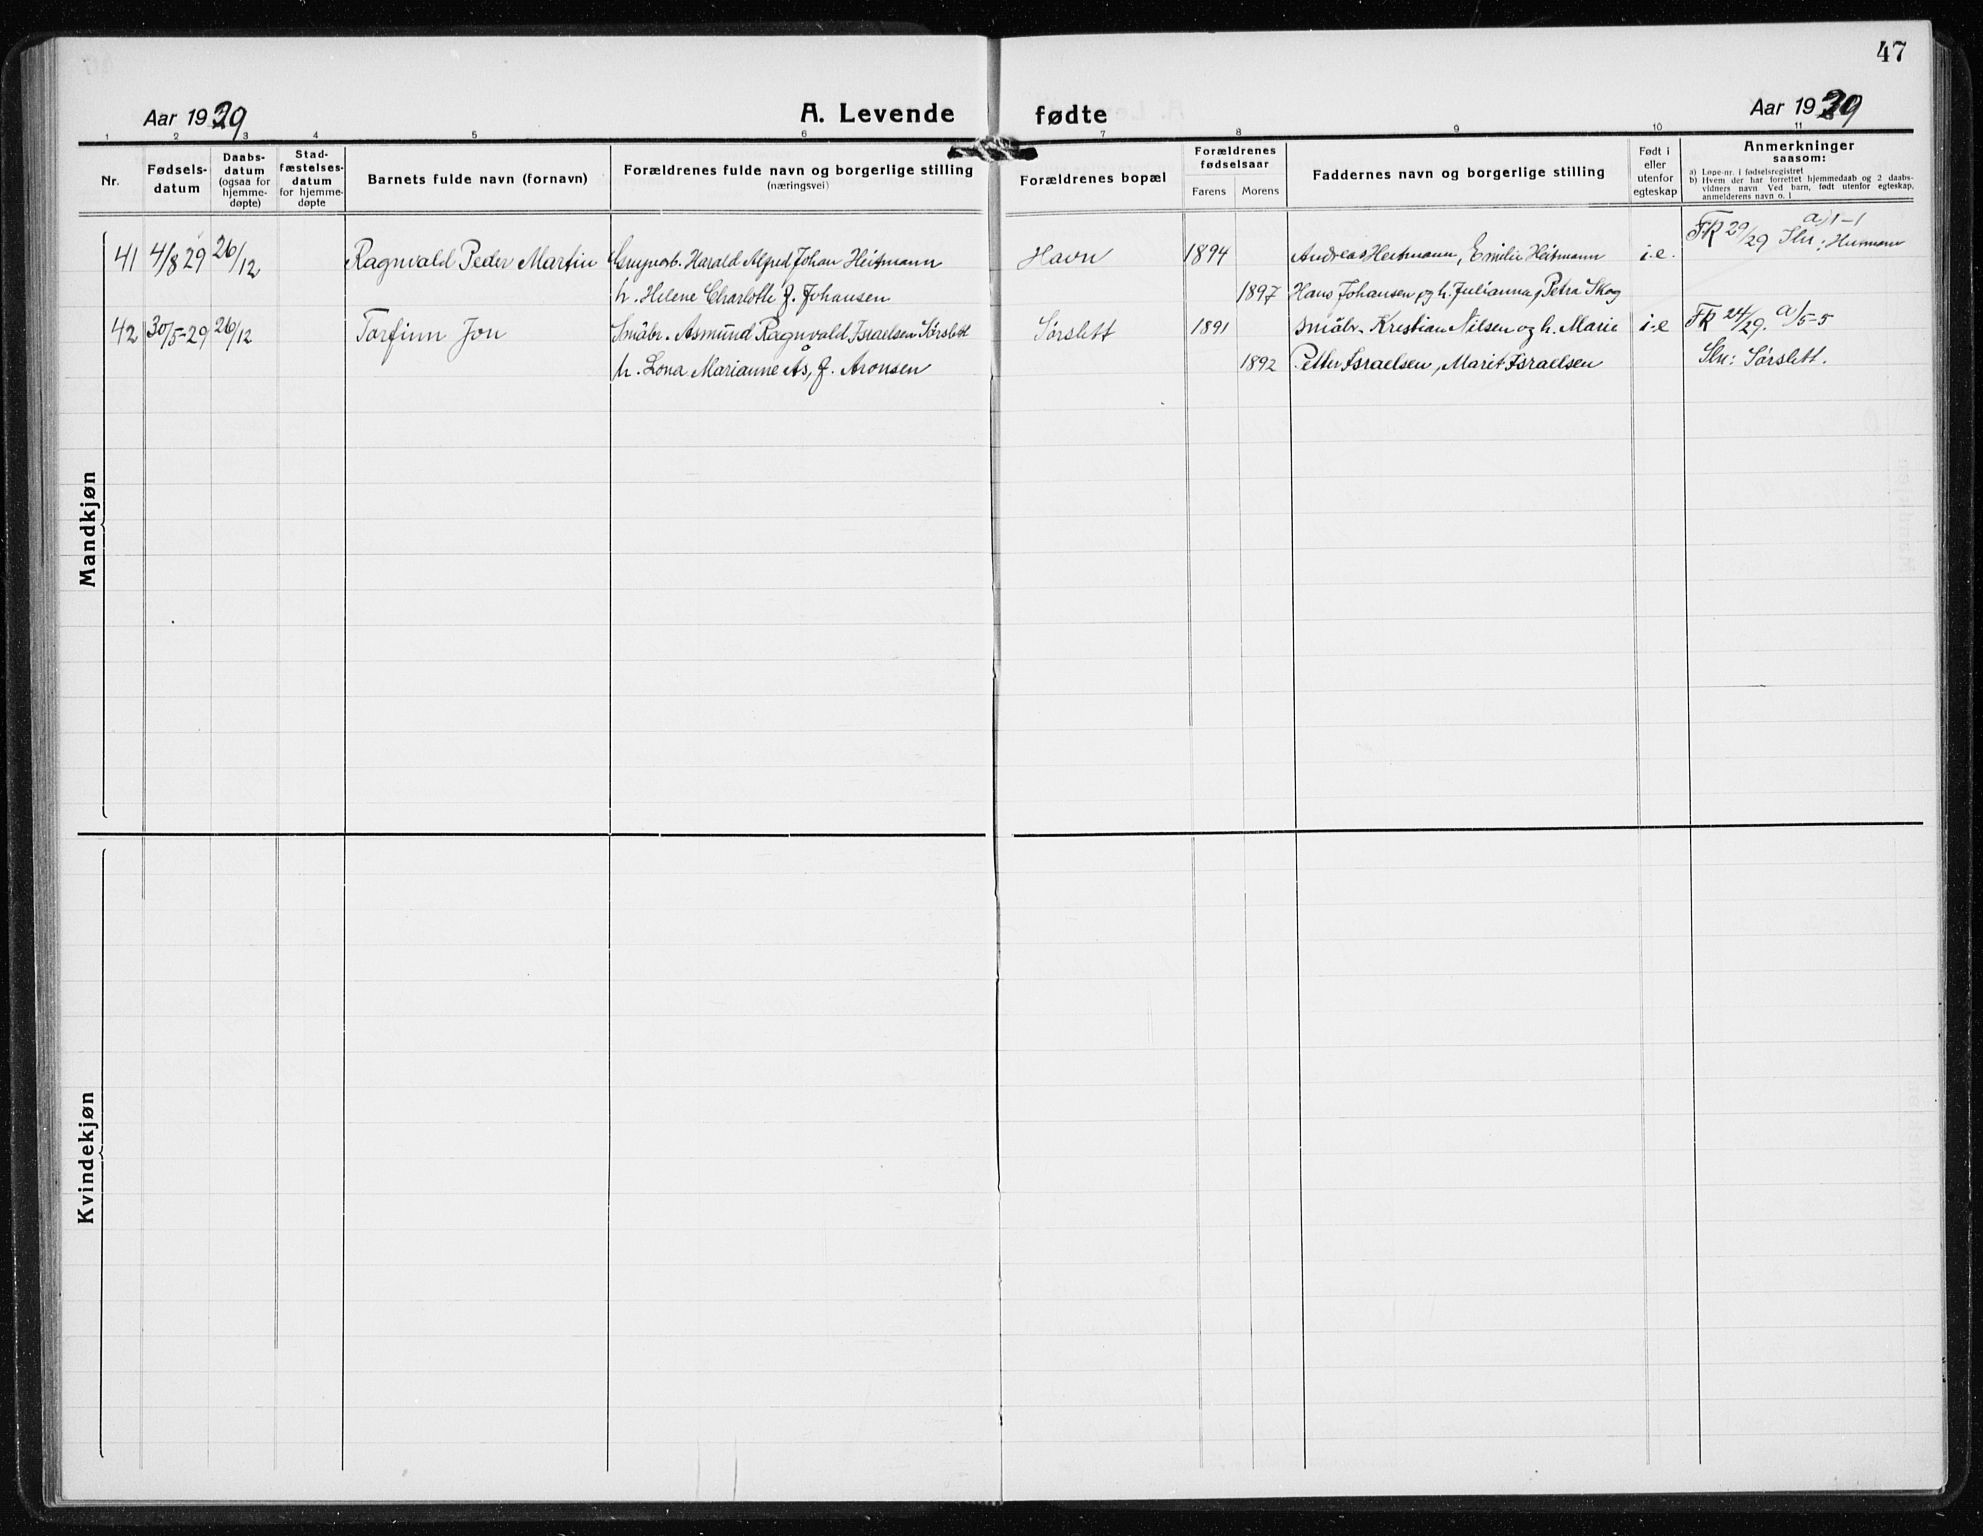 47
Aar 1929
A. Levende fødte
Aar 1929
1 2 3 4 5 6 7 8 9 10 11
Nr.
Fødsels-
datum
Daabs-
datum
(ogsaa for
hjemme-
døpte)
Stad-
fæstelses-
datum
for hjemme-
døpte
Barnets fulde navn (fornavn)
Forældrenes fulde navn og borgerlige stilling
(næringsvei)
Forældrenes bopæl
Forældrenes
fødselsaar
Farens Morens
Faddernes navn og borgerlige stilling
Født i
eller
utenfor
egteskap
Anmerkninger
saasom:
a) Løpe-nr. i fødselsregistret
b) Hvem der har forrettet hjemmedaab og 2 daabs-
vidners navn. Ved barn, født utenfor egteskap,
anmelderens navn o. l
Mandkjøn
41 4/8 29 26/12 Ragnvald Peder Martin Harald Alfred Johan Heitmann Havn 1894 Andreas Heitmann, Emilie Heitmann i.e. FK 29/29 a) 1-1
h. Helene Charlotte f. Johansen 1897 Hans Johansen og h. Julianna, Petra Skog
42 30/5-29 26/12 Torfinn Jon Småbr. Asmund Ragnvald Israelsen Sørslett Sørslett 1891 Småbr. Kristian Nilsen og h. Marie i-e FK 24/29. a/5-5
h. Lona Marianne Ås, f. Aronsen 1892 Petter Israelsen, Marit Israelsen Sln: Sørslett.
Kvindekjøn